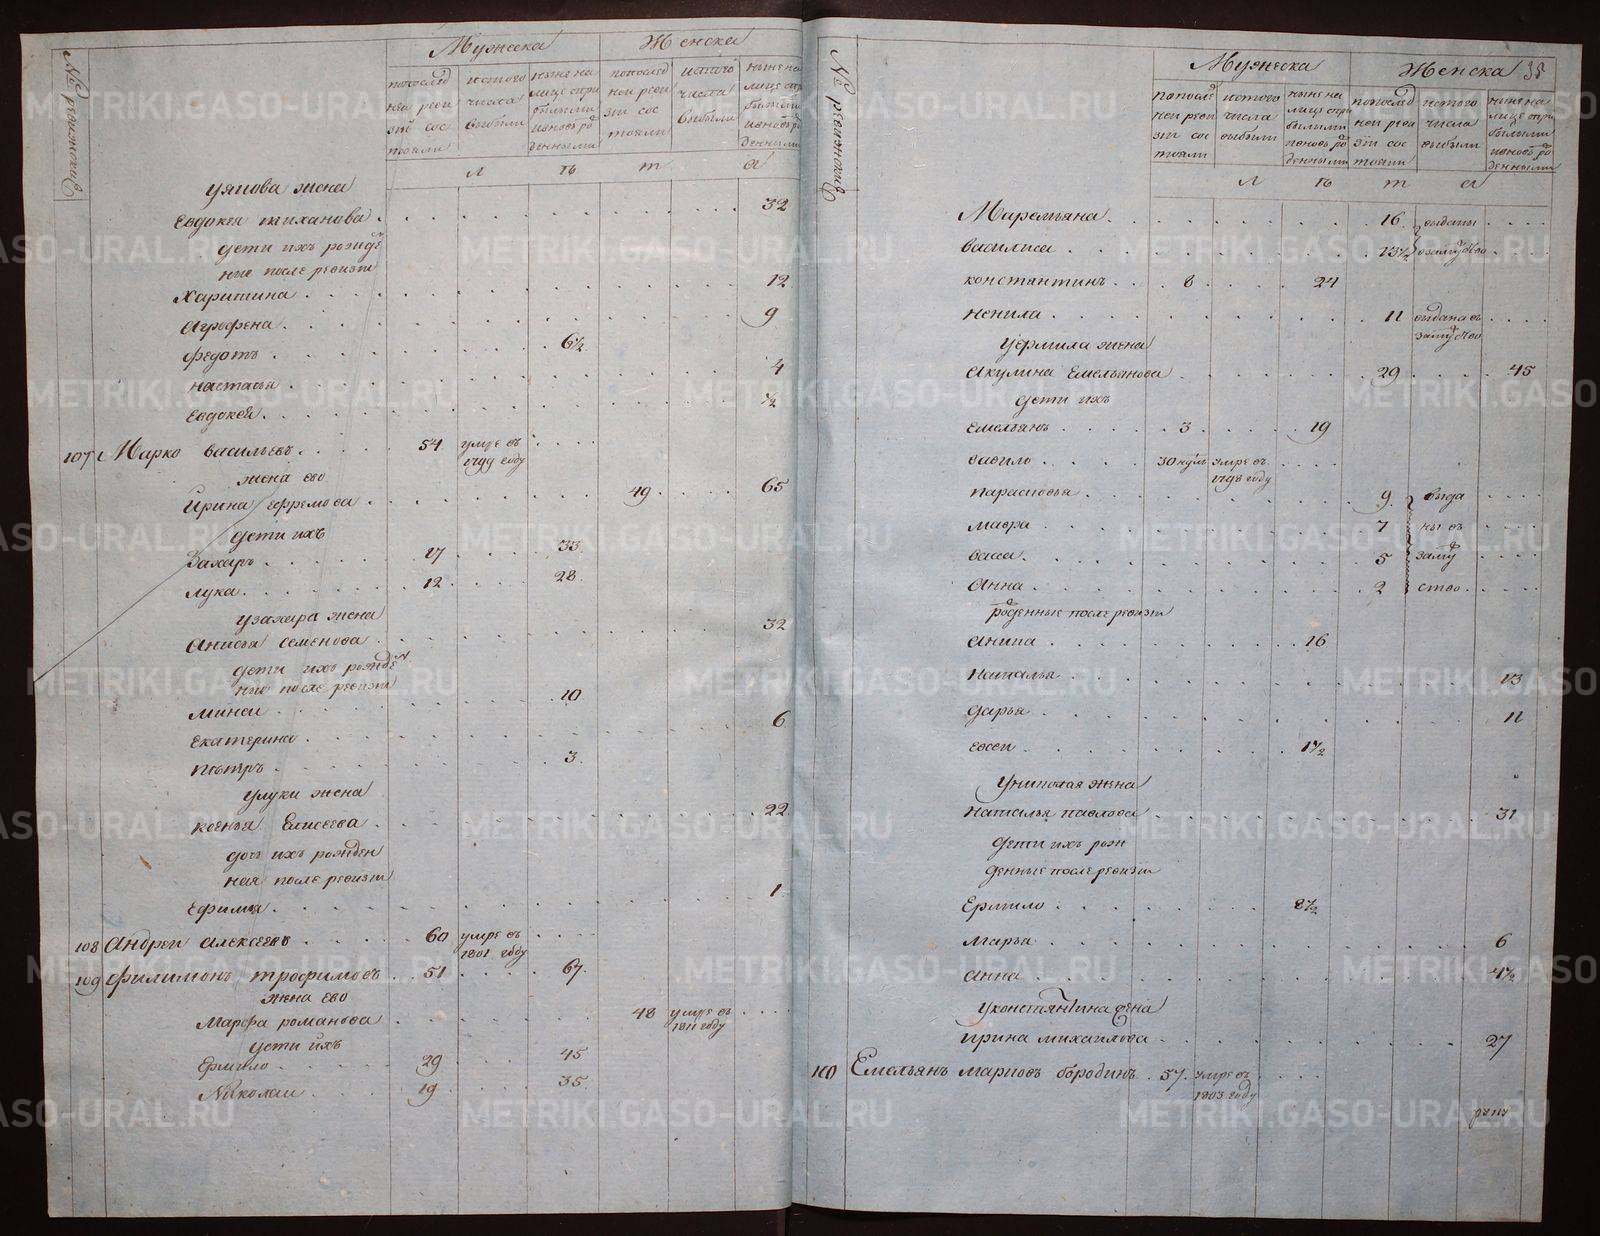 № ревижские
Мужеска Женска
попослед ней реви зiи сос тояли
истого числа выбыли
ныне на лице спри былыми ивновь ро денными
попослед ней реви зiи сос тояли
истого числа выбыли
ныне на лице спри былыми ивновь ро денными
л ѣ т а
уянова жена
Евдокея тиханова 32
дети ихъ рожде
ные после ревизiи
Харитина 12
Агрофена 9
Федотъ 6 1/2
настасья 4
Евдокея 1/2
107 Марко васильевъ 54 умре въ 1799 году
жена ево
Ирина ефремова 49 65
дети ихъ
Захаръ 17 33
лука 12 28
узахара жена
Анисья семенова 32
дети ихъ рожде
ные после ревизiи
Минеи 10
Екатерина 6
Петръ 3
улуки жена
ксенья Елисеева 22
дочь ихъ рожден
ная после ревизiи
Ефимiя 1
108 Андреи алексеевъ 60 умре въ 1801 году
109 Филимонъ трофимовъ 51 67
жена ево
Марфа романова 48 умре въ 1811 году
дети ихъ
Ермило 29 45
Николаи 19 35
№ ревижские
Мужеска Женска 35
попослед ней реви зiи сос тояли
истого числа выбыли
ныне на лице спри былыми ивновь ро денными
попослед ней реви зiи сос тояли
истого числа выбыли
ныне на лице спри былыми ивновь ро денными
л ѣ т а
Маремьяна 16 выданы
василиса 13 1/2 взамужство
константинъ 8 24
Ненила 11 выдана в замужство
уермила жена
Акулина Емельянова 29 45
дети ихъ
Емельянъ 3 19
вавило 30 нѣдль умре въ 1798 году
парасковья 9 выда
мавра 7 ны въ
васса 5 заму
Анна 2 ство
роденные после ревизiи
аника 16
Наталья 13
дарья 11
евсеи 1 1/2
униколая жена
наталья павлова 31
дети ихъ рож
денные после ревизiи
Ермило 8 1/2
марья 6
анна 4 1/2
уконстянтина жена
ирина михаилова 27
110 Емельянъ марковъ бородинъ 57 умре въ 1803 году
METRIKI.GASO-URAL.RU